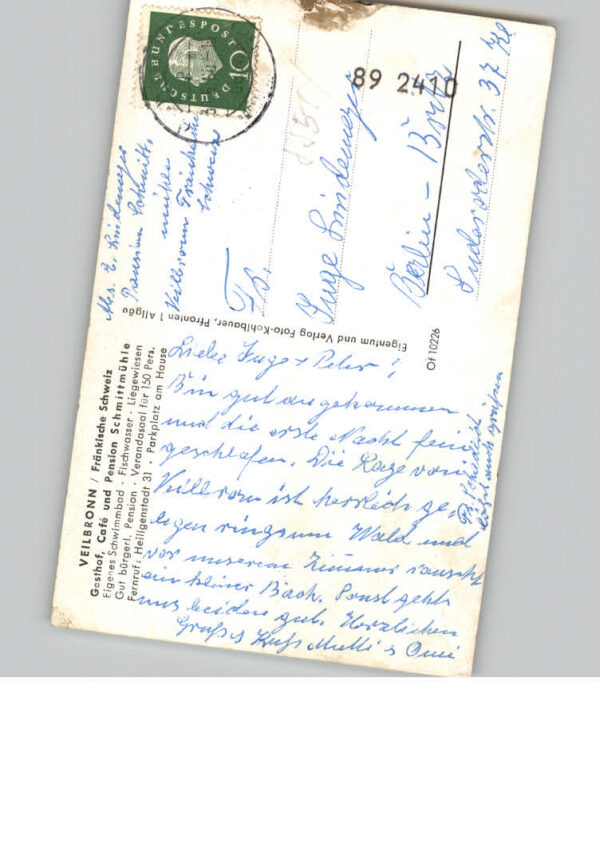 DEUTSCHE BUNDESPOST
10
89 2410
Abs. E. Lindemeyer
Pension Schmitt-
mühle
Veilbronn Fränkische
Schweiz
Inge Lindemeyer
Berlin – Britz
37
Eigentum und Verlag Foto-Kohlbauer, Pfronten 1 Allgäu
Of 10226
VEILBRONN / Fränkische Schweiz
Gasthof, Café und Pension Schmittmühle
Eigenes Schwimmbad · Fischwasser · Liegewiesen
Gut bürgerl. Pension · Verandasaal für 150 Pers.
Fernruf: Heiligenstadt 31 · Parkplatz am Hause
Liebe Inge + Peter!
Bin gut angekommen
und die erste Nacht fein
geschlafen. Die Lage von
Veilbronn ist herrlich ge-
legen ringsum Wald und
vor unserem Zimmer rauscht
ein kleiner Bach. Sonst geht
uns beiden gut. Herzlichen
Gruß & Kuß Mutti & Omi
läßt auch grüßen